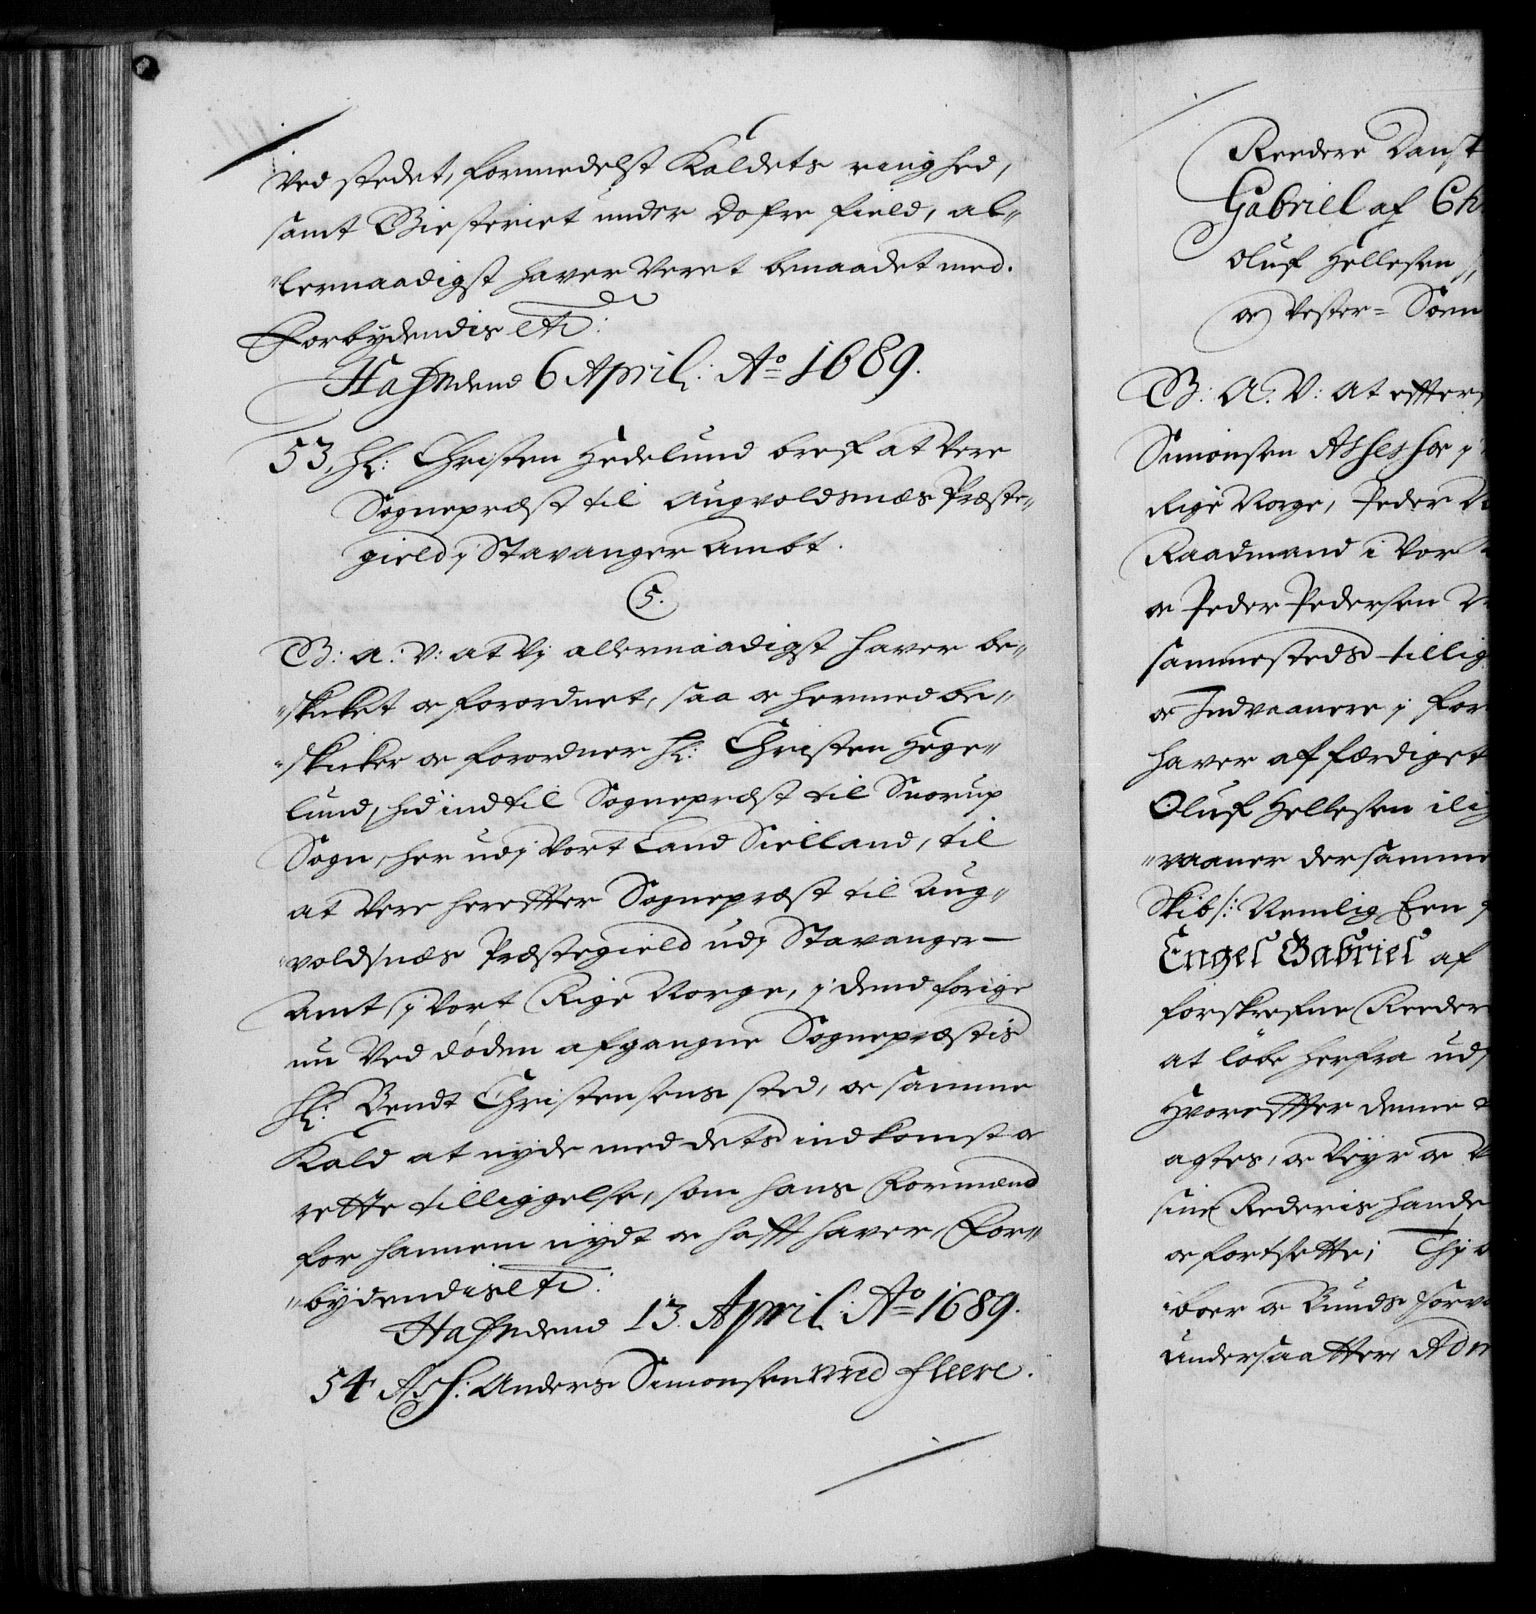 Ved stedet, formedelst Kaldets ringhed,
samt Bisteriet under Dofre field, al„
„lernaadigst haver Veret benaadet med.
Forbydendis etc:
Hafn dend 6 April: Ao 1689.
53, Hr: Christen Hedelund bref at Vere
Sognepræst til Augvoldsnæs Præste„
gield i Stavanger Ambt.
5.
G: A: V: at Vj allernaadigst haver be„
„skicket oc forordnet, saa oc hermed be„
„skicker oc forordner Hr: Christen Hege„
lund, hid indtil Sognepræst til Snorup
Sogn, her udj Vort Land Sielland, til
at Vere herefter Sognepræst til Aug„
„voldsnæs Præstegield udj Stavanger
Amt j Vort Rige Norge, j dend forige
nu Ved døden afgangne Sognepræstis
Hr: Bendt Christensens sted, oc samme
Kald at nyde med dets indkomst oc
rette tilliggelse, som hans Formænd
for hannem nydt oc hafft haver, For„
„bydendis etc:
Hafn dend 13. April: Ao 1689.
54 Ass: Anders Simonsen med fleere.
Reedere Danst
Gabriel af Ch
Oluf Hellesen
oc Vester= Søen
G: A: V: at efter
Simonsen Assessor j
Rige Norge, Peder
Raadmand i Vor
oc Peder Pedersen
sammesteds tillig
oc Indvaanere j for
haver affærdiget
Oluf Hellesen ilig
„vaaner dersamme
Skib /: Nemlig Een
Engel Gabriel af
forskrefne Reeder
at løbe herfra ud
Hvorefter denne
agtes, oc Vejr oc
sine Rederis hande
oc fortsette; Thj
boer oc Bunds forv
undersaatter Adm